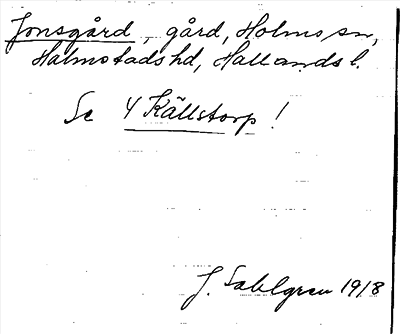 Jonsgård, gård, Holms sn,
Halmstads hd, Hallands l.
Se 4 Källstorp!
J. Sahlgren 1918